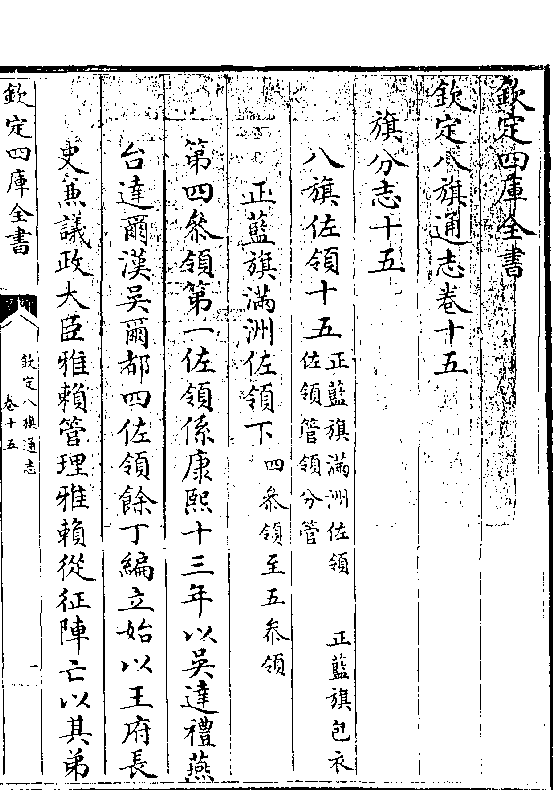 欽定四庫全書
欽定八旗通志卷十五
旗分志十五
八旗佐領十五正藍旗滿洲佐領 正藍旗包衣
佐領管領分管
正藍旗滿洲佐領下四叅領至五叅領
第四叅領第一佐領係康熙十三年以吳達禮燕
台達爾漢吳爾都四佐領餘丁編立始以王府長
吏兼議政大臣雅賴管理雅賴從征陣亡以其弟
欽定四庫全書
欽定八旗通志
卷十五
一